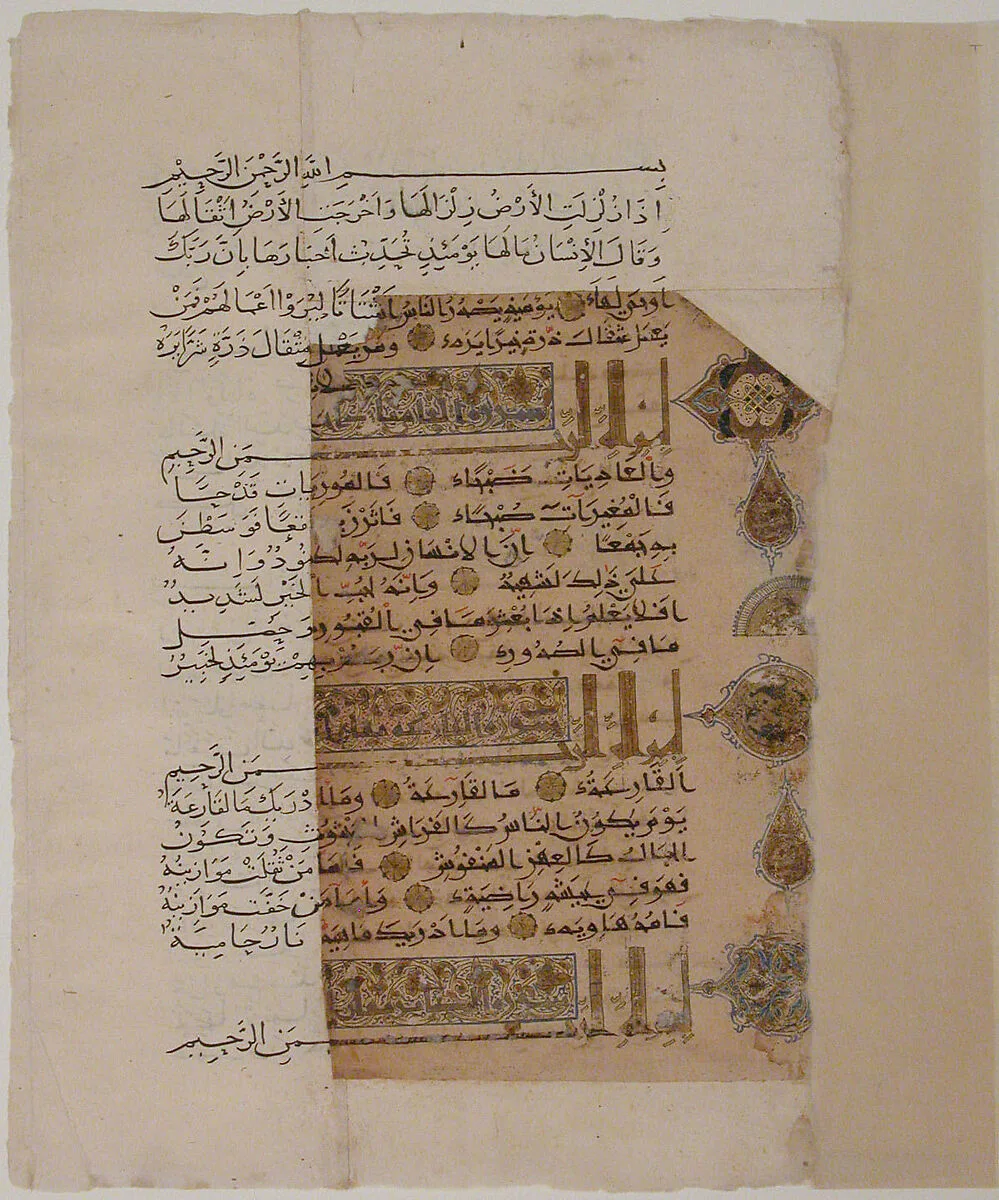 بِسْمِ اللَّهِ الرَّحْمَنِ الرَّحِيمِ
إِذَا زُلْزِلَتِ الْأَرْضُ زِلْزَالَهَا وَأَخْرَجَتِ الْأَرْضُ أَثْقَالَهَا
وَقَالَ الْإِنْسَانُ مَا لَهَا يَوْمَئِذٍ تُحَدِّثُ أَخْبَارَهَا بِأَنَّ رَبَّكَ
أَوْحَى لَهَا يَوْمَئِذٍ يَصْدُرُ النَّاسُ أَشْتَاتًا لِيُرَوْا أَعْمَالَهُمْ فَمَنْ
يَعْمَلْ مِثْقَالَ ذَرَّةٍ خَيْرًا يَرَهُ وَمَنْ يَعْمَلْ مِثْقَالَ ذَرَّةٍ شَرًّا يَرَهُ
سورة العاديات
بِسْمِ اللَّهِ الرَّحْمَنِ الرَّحِيمِ
وَالْعَادِيَاتِ ضَبْحًا فَالْمُورِيَاتِ قَدْحًا
فَالْمُغِيرَاتِ صُبْحًا فَأَثَرْنَ بِهِ نَقْعًا فَوَسَطْنَ
بِهِ جَمْعًا إِنَّ الْإِنْسَانَ لِرَبِّهِ لَكَنُودٌ وَإِنَّهُ
عَلَى ذَلِكَ لَشَهِيدٌ وَإِنَّهُ لِحُبِّ الْخَيْرِ لَشَدِيدٌ
أَفَلَا يَعْلَمُ إِذَا بُعْثِرَ مَا فِي الْقُبُورِ وَحُصِّلَ
مَا فِي الصُّدُورِ إِنَّ رَبَّهُمْ بِهِمْ يَوْمَئِذٍ لَخَبِيرٌ
سورة القارعة
بِسْمِ اللَّهِ الرَّحْمَنِ الرَّحِيمِ
الْقَارِعَةُ مَا الْقَارِعَةُ وَمَا أَدْرَيكَ مَا الْقَارِعَةُ
يَوْمَ يَكُونُ النَّاسُ كَالْفَرَاشِ الْمَبْثُوثِ وَتَكُونُ
الْجِبَالُ كَالْعِهْنِ الْمَنْفُوشِ فَأَمَّا مَنْ ثَقُلَتْ مَوَازِينُهُ
فَهُوَ فِي عِيشَةٍ رَاضِيَةٍ وَأَمَّا مَنْ خَفَّتْ مَوَازِينُهُ
فَأُمُّهُ هَاوِيَةٌ وَمَا أَدْرَيكَ مَا هِيَهْ نَارٌ حَامِيَةٌ
بِسْمِ اللَّهِ الرَّحْمَنِ الرَّحِيمِ